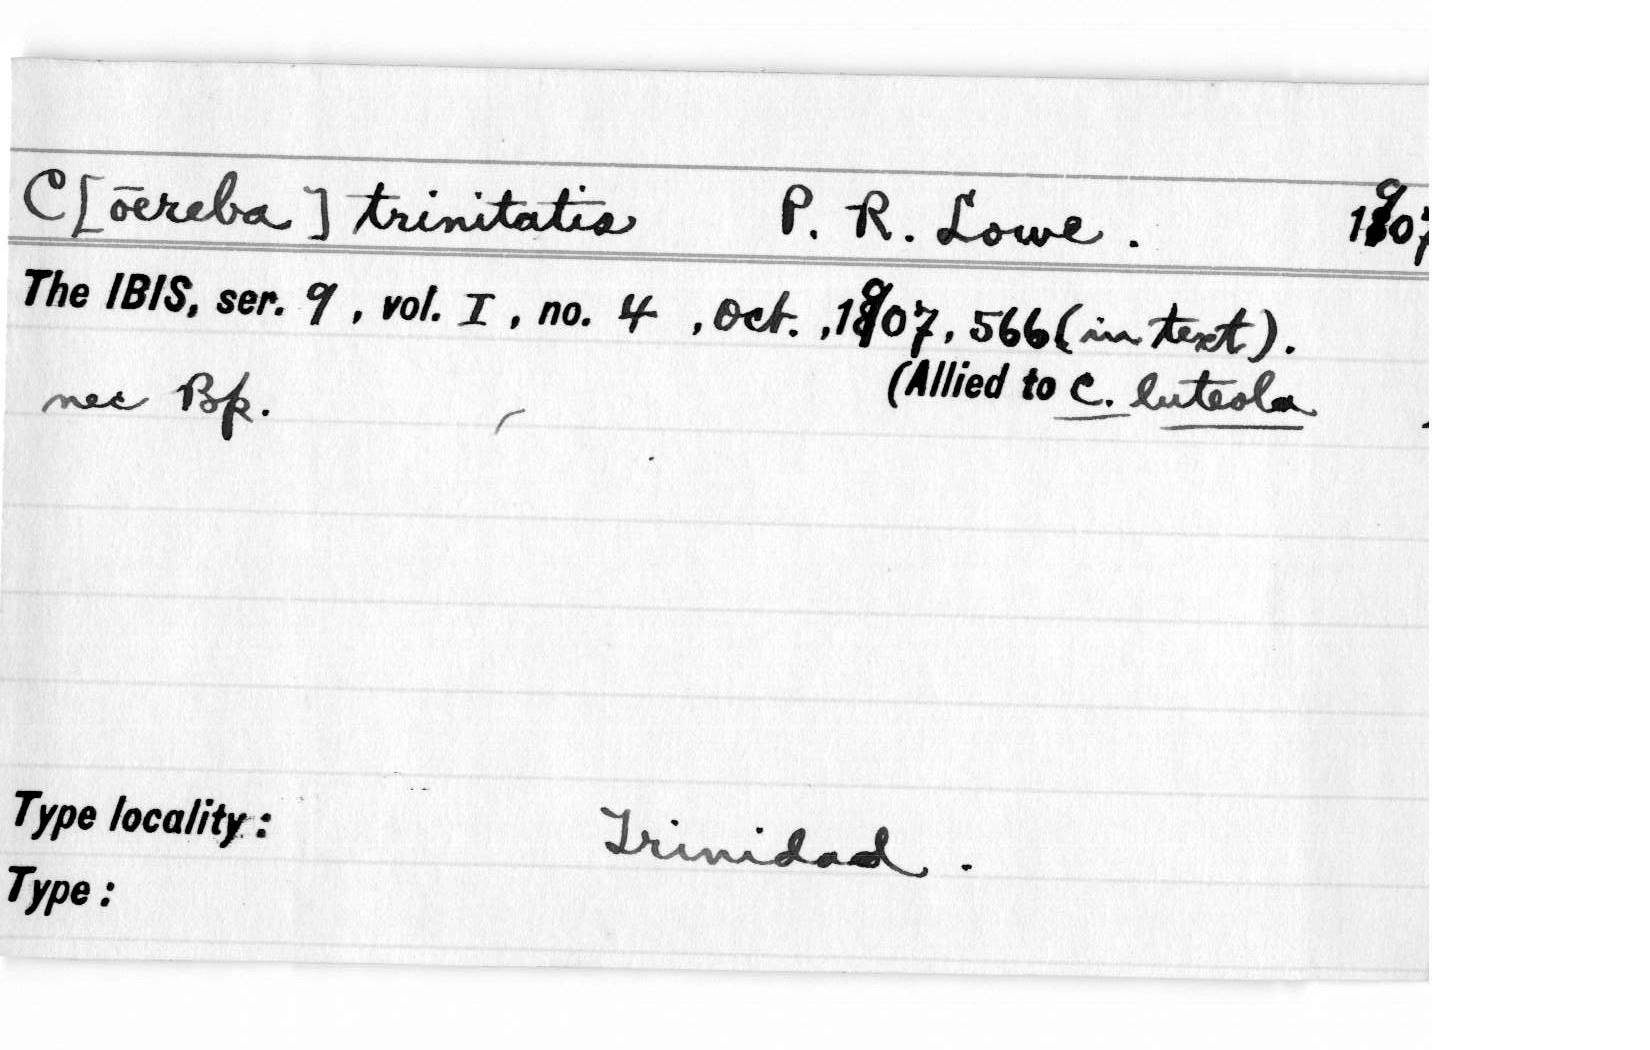 C[ōereba] trinitatis P. R. Lowe. 1907
The IBIS, ser. 9, vol. I, no. 4, Oct., 1907, 566 (in text).
nec Bp. (Allied to C. luteola
Type locality: Trinidad.
Type: